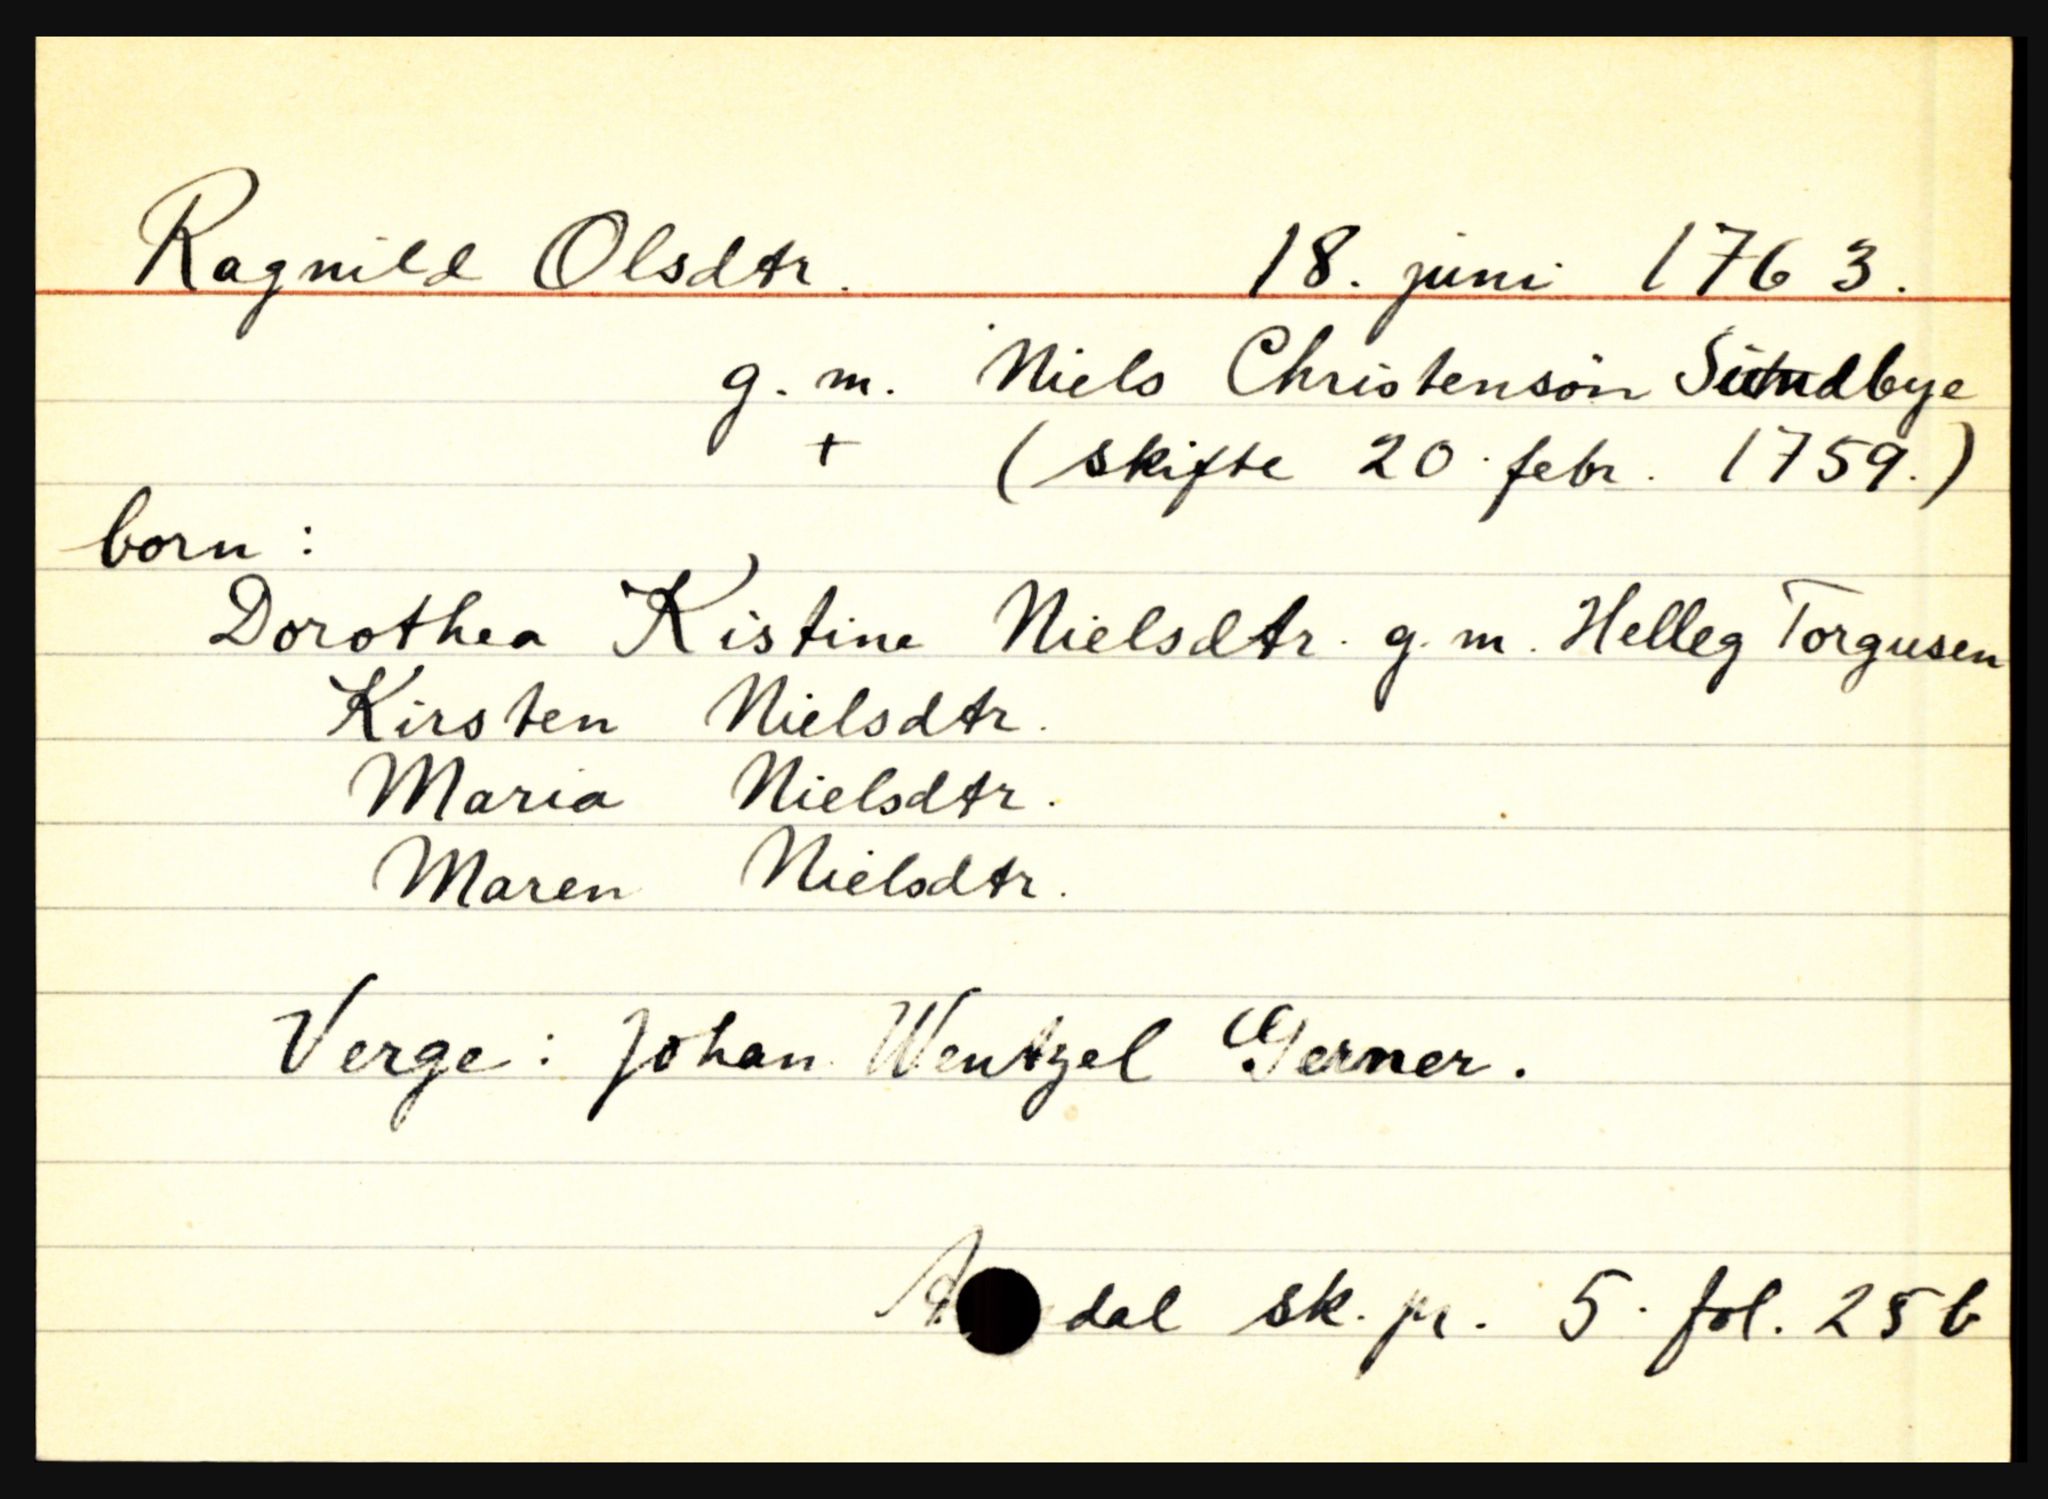 Ragnild Olsdtr. 18. juni 1763.
g. m. Niels Christensön Sundbye
+ (skifte 20. febr. 1759.)
born:
Dorothea Kistine Nielsdtr. g. m. Helleg Torgusen
Kirsten Nielsdtr.
Maria Nielsdtr.
Maren Nielsdtr.
Verge: Johan Wentzel Gerner.
A dal sk. pr. 5. fol. 25 b